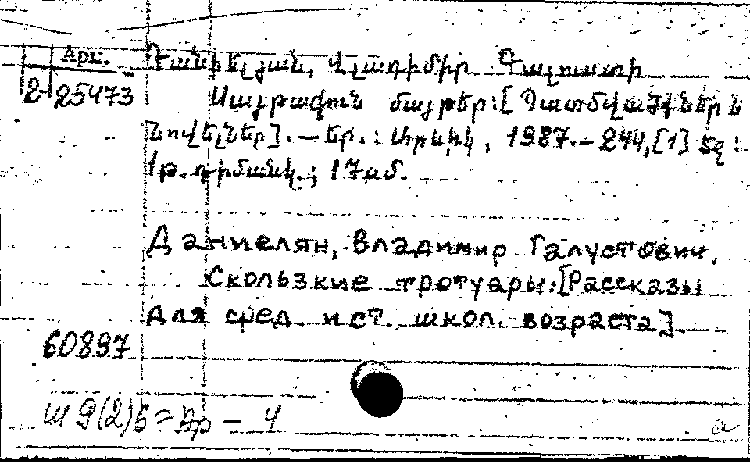 Арм. Դանիելյան, Վլադիմիր Գալուստի
2-25473 Սայթաքուն մայթեր: [Պատմվածքներ և
նովելներ]. – Եր.: Արևիկ, 1987. – 244, [1] էջ:
1թ. դիմանկ.; 17սմ.
Даниелян, Владимир Галустович.
Скользкие тротуары: [Рассказы
для сред. и ст. школ. возраста].
60897
Ш 9(2)6 = Ар – 4
a